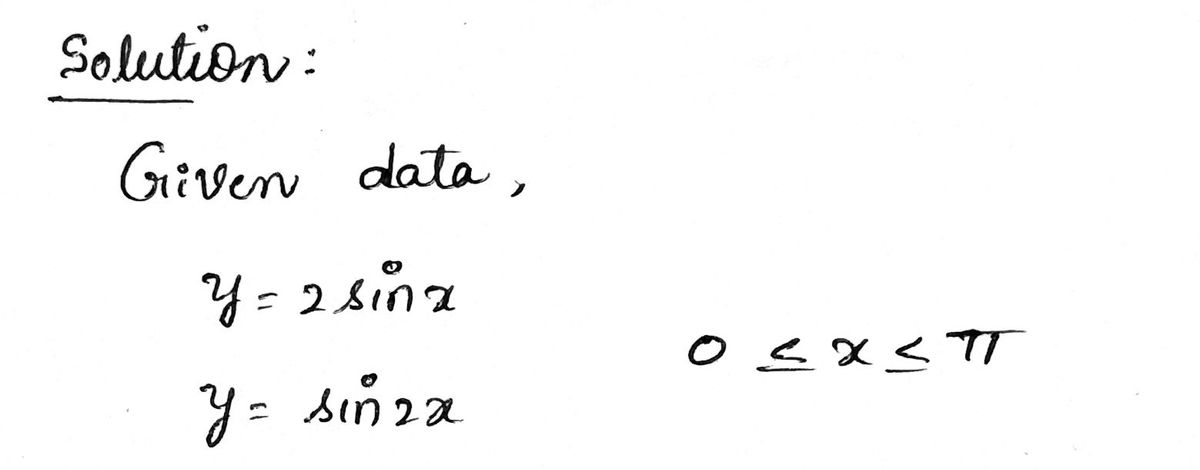 Solution:
Given data,
y = 2 sin x
0 ≤ x ≤ π
y = sin 2x